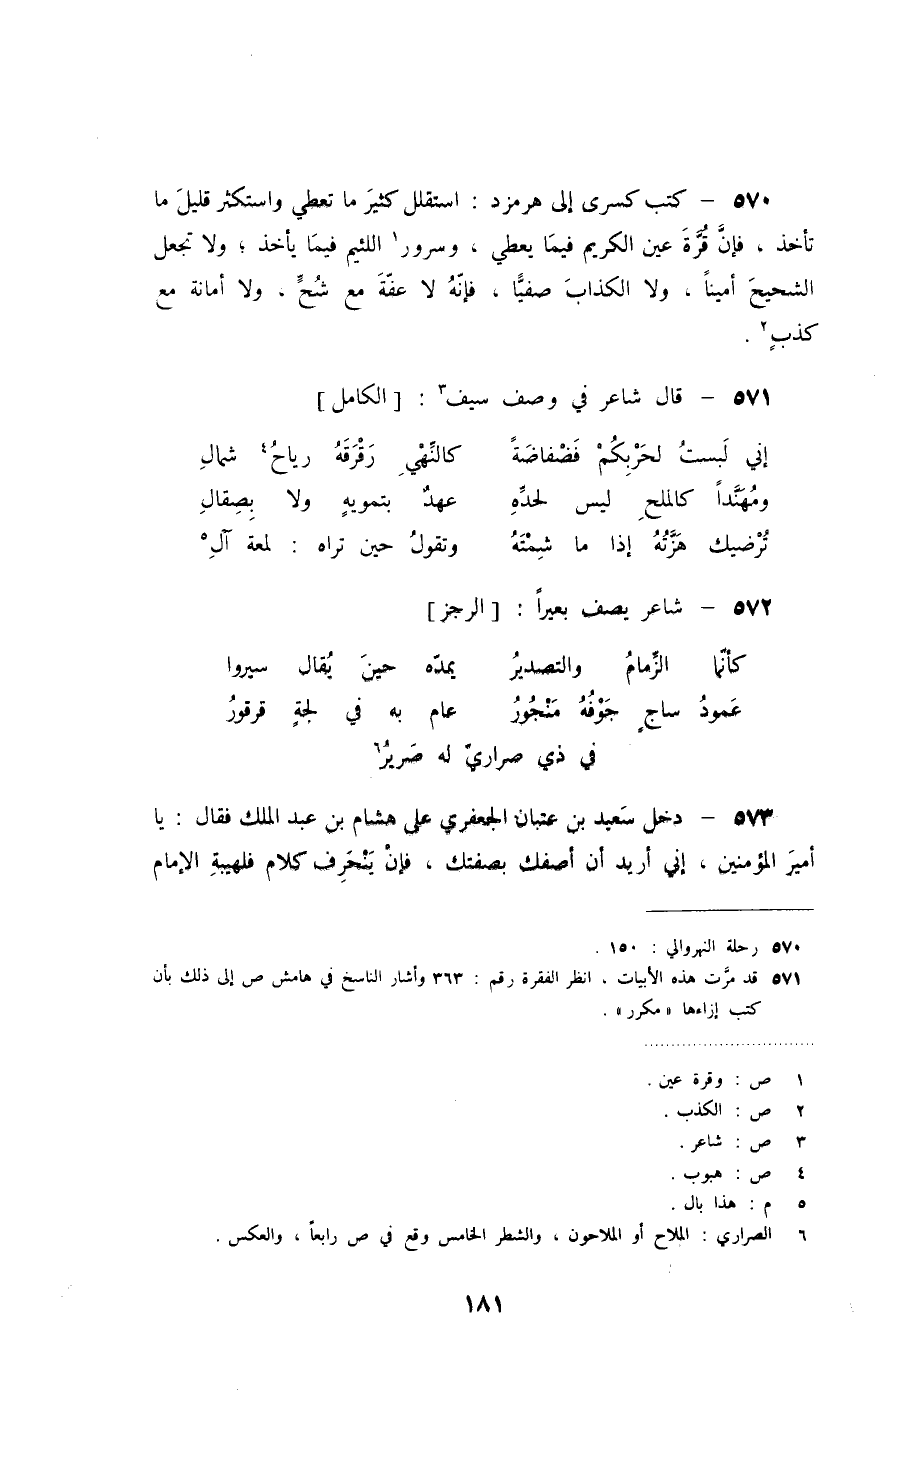 ٥٧٠ – كتب كسرى إلى هرمزد : استقلل كثيرَ ما تعطي واستكثر قليلَ ما
تأخذ ، فإنَّ قُرَّةَ عين الكريم فيمَا يعطي ، وسرور١ اللئيم فيمَا يأخذ ؛ ولا تجعل
الشحيحَ أميناً ، ولا الكذابَ صفيًّا ، فإنّهُ لا عفّةَ مع شُحٍّ ، ولا أمانة مع
كذبٍ٢ .
٥٧١ – قال شاعر في وصف سيف٣ : [ الكامل ]
إني لَبستُ لحَرْبِكُمْ فَضْفاضَةً كالنَّهْيِ رَقْرَقَهُ رياحُ٤ شمالِ
ومُهَنَّداً كالملحِ ليس لحدِّهِ عهدٌ بتمويهٍ ولا بِصِقالِ
تُرْضيك هَزَّتُهُ إذا ما شِمْتَهُ وتقولُ حين تراه : لمعة آلِ٥
٥٧٢ – شاعر يصف بعيراً : [ الرجز ]
كأنّما الزِّمامُ والتصديرُ يمدّه حينَ يُقال سيروا
عَمودُ ساجٍ جَوْفُهُ مَنْجُورُ عام به في لجةٍ قرقورُ
في ذي صراريّ له صَريرُ٦
٥٧٣ – دخل سَعيد بن عتبان الجعفري على هشام بن عبد الملك فقال : يا
أميرَ المؤمنين ، إني أريد أن أصفك بصفتك ، فإنْ يَنْحَرِف كلام فلهيبةِ الإمام
٥٧٠ رحلة النهروالي : ١٥٠ .
٥٧١ قد مرَّت هذه الأبيات ، انظر الفقرة رقم : ٣٦٣ وأشار الناسخ في هامش ص إلى ذلك بأن
كتب إزاءها « مكرر » .
١ ص : وقرة عين .
٢ ص : الكذب .
٣ ص : شاعر .
٤ ص : هبوب .
٥ م : هذا بال .
٦ الصراري : الملاح أو الملاحون ، والشطر الخامس وقع في ص رابعاً ، والعكس .
١٨١